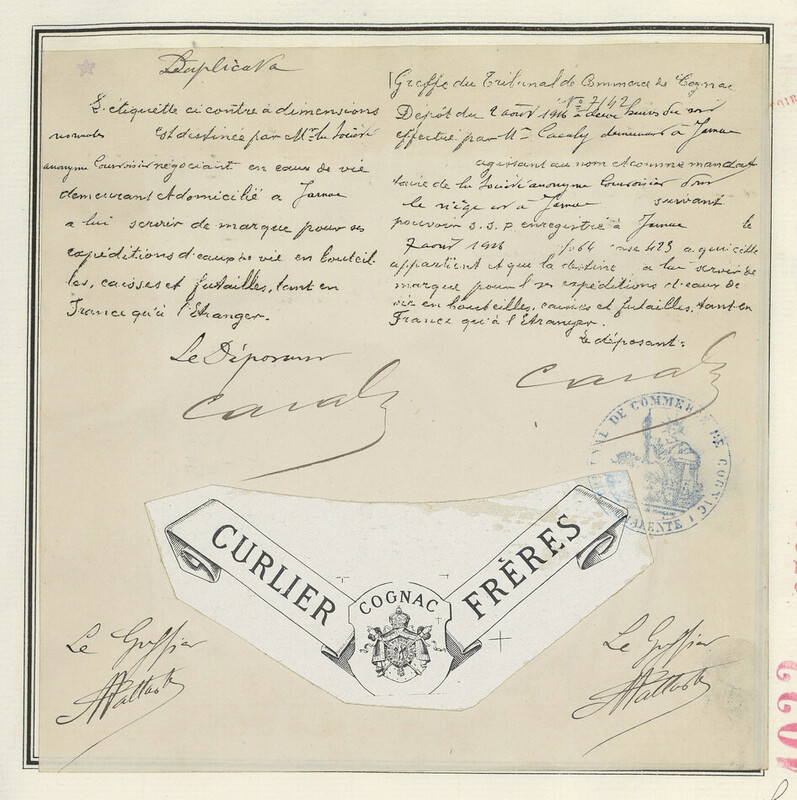 Duplicata
L'étiquette ci contre à dimensions
normales est destinée par Mr la Société
anonyme Courvoisier négociant en eaux de vie
demeurant et domicilié à Jarnac
a lui servir de marque pour ses
expéditions d'eaux de vie en bouteil-
les, caisses et futailles, tant en
France qu'à l'Etranger.
Le Déposant
Greffe du Tribunal de Commerce de Cognac
No 7142
Dépôt du 2 août 1926 à deux heures du soir
effectué par Mr demeurant à Jarnac
agissant au nom et comme manda-
taire de la Société anonyme Courvoisier dont
le siège est à Jarnac suivant
pouvoir S.S.P. enregistré à Jarnac le
2 août 1926 fo 64 case 423 a qui elle
appartient et que la destine a lui servir de
marque pour ses expéditions d'eaux de
vie en bouteilles, caisses et futailles, tant en
France qu'à l'Etranger.
Le déposant:
TRIBUNAL DE COMMERCE DE COGNAC
CHARENTE
CURLIER FRÈRES
COGNAC
Le Greffier
Le Greffier